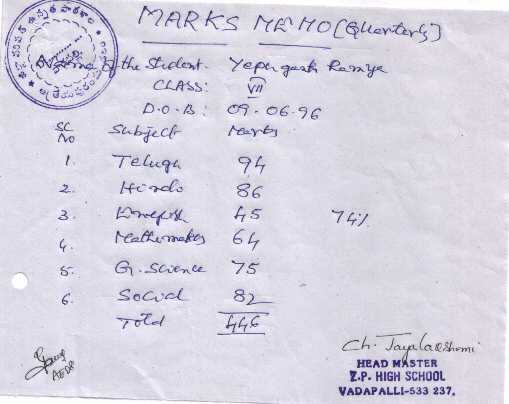 MARKS MEMO [Quarterly]
Name of the Student. Yepuganti Ramya
CLASS: VII
D.O.B: 09.06.96
SL NO Subject Marks
1. Telugu 94
2. Hindi 86
3. English 45 74%
4. Mathematics 64
5. G. Science 75
6. Social 82
Total 446
Ch. Jayalakshmi
HEAD MASTER
Z.P. HIGH SCHOOL
VADAPALLI-533 237.